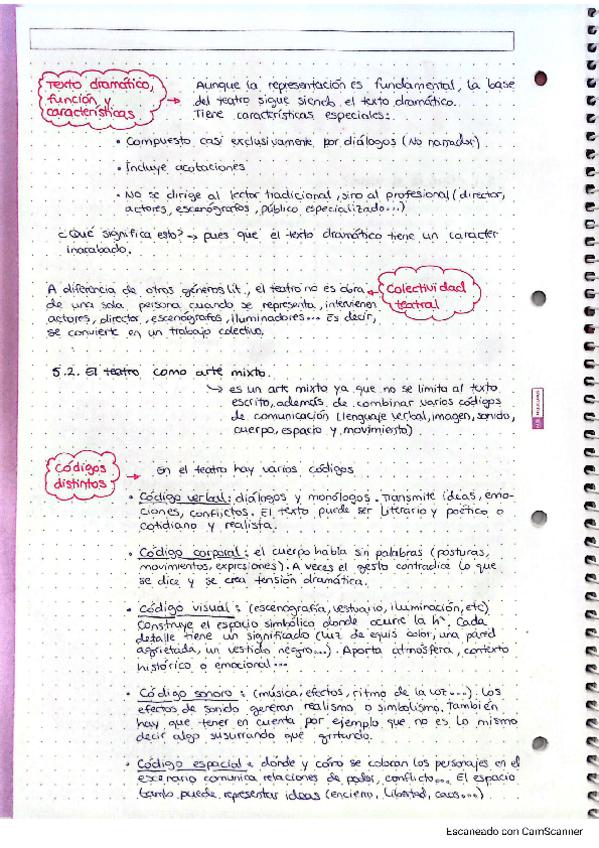 Texto dramático, función y características →
Aunque la representación es fundamental, la base
del teatro sigue siendo el texto dramático.
Tiene características especiales:
• Compuesto casi exclusivamente por diálogos (No narrador)
• Incluye acotaciones
• No se dirige al lector tradicional, sino al profesional (director,
actores, escenógrafos, público especializado...)
¿Qué significa esto? → pues que el texto dramático tiene un carácter
inacabado.
Colectividad teatral
A diferencia de otros géneros lit., el teatro no es obra
de una sola persona cuando se representa, intervienen
actores, director, escenógrafos, iluminadores... Es decir,
se convierte en un trabajo colectivo.
5.2. El teatro como arte mixto.
↳ es un arte mixto ya que no se limita al texto
escrito, además de combinar varios códigos
de comunicación (lenguaje verbal, imagen, sonido,
cuerpo, espacio y movimiento)
Códigos distintos →
en el teatro hay varios códigos
• Código verbal: diálogos y monólogos. Transmite ideas, emo-
ciones, conflictos. El texto puede ser literario y poético o
cotidiano y realista.
• Código corporal: el cuerpo habla sin palabras (posturas,
movimientos, expresiones). A veces el gesto contradice lo que
se dice y se crea tensión dramática.
• Código visual: (escenografía, vestuario, iluminación, etc)
Construye el espacio simbólico donde ocurre la hª. Cada
detalle tiene un significado (luz de equis color, una pared
agrietada, un vestido negro...). Aporta atmósfera, contexto
histórico o emocional...
• Código sonoro: (música, efectos, ritmo de la voz...). Los
efectos de sonido generan realismo o simbolismo. También
hay que tener en cuenta por ejemplo que no es lo mismo
decir algo susurrando que gritando.
• Código espacial: dónde y cómo se colocan los personajes en el
escenario comunica relaciones de poder, conflicto... El espacio
también puede representar ideas (encierro, libertad, caos...)
Escaneado con CamScanner